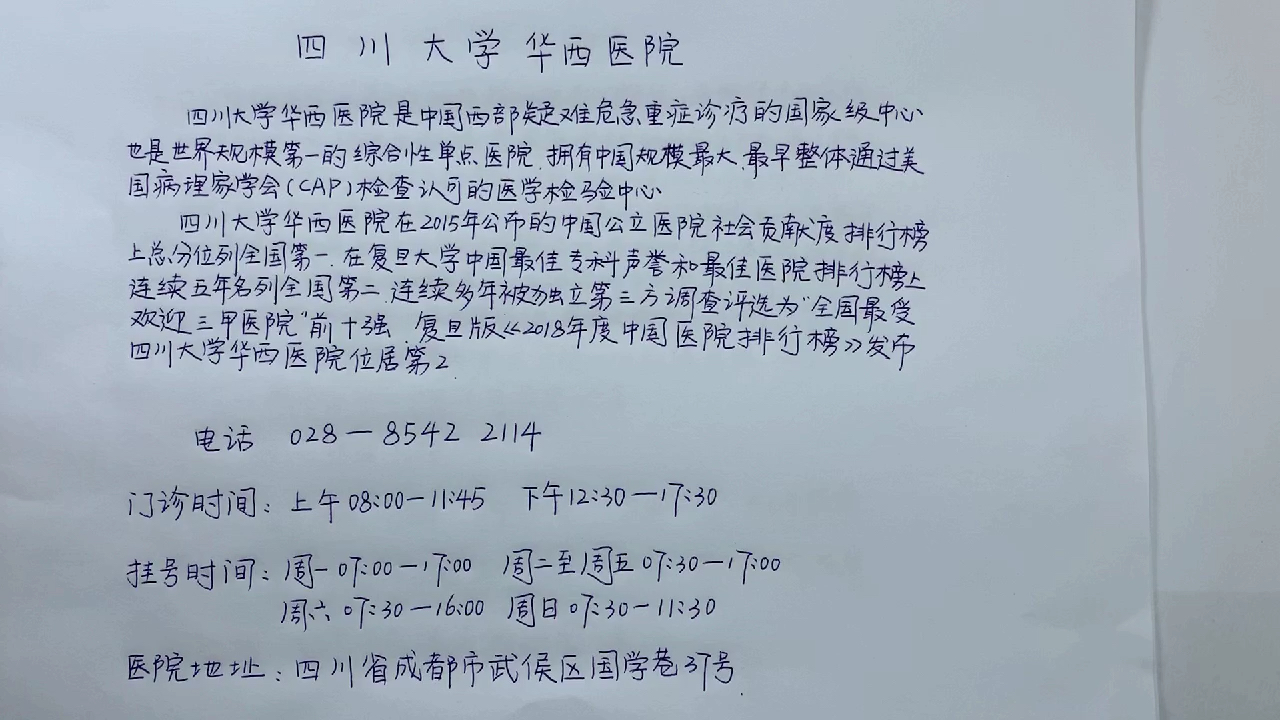 四川大学华西医院
四川大学华西医院是中国西部疑难危急重症诊疗的国家级中心
也是世界规模第一的综合性单点医院.拥有中国规模最大、最早整体通过美
国病理家学会(CAP)检查认可的医学检验中心
四川大学华西医院在2015年公布的中国公立医院社会贡献度排行榜
上总分位列全国第一.在复旦大学中国最佳专科声誉和最佳医院排行榜上
连续五年名列全国第二.连续多年被独立第三方调查评选为“全国最受
欢迎三甲医院”前十强 复旦版《2018年度中国医院排行榜》发布
四川大学华西医院位居第2.
电话 028-8542 2114
门诊时间：上午08:00-11:45 下午12:30-17:30
挂号时间：周一07:00-17:00 周二至周五07:30-17:00
周六07:30-16:00 周日07:30-11:30
医院地址：四川省成都市武侯区国学巷37号.